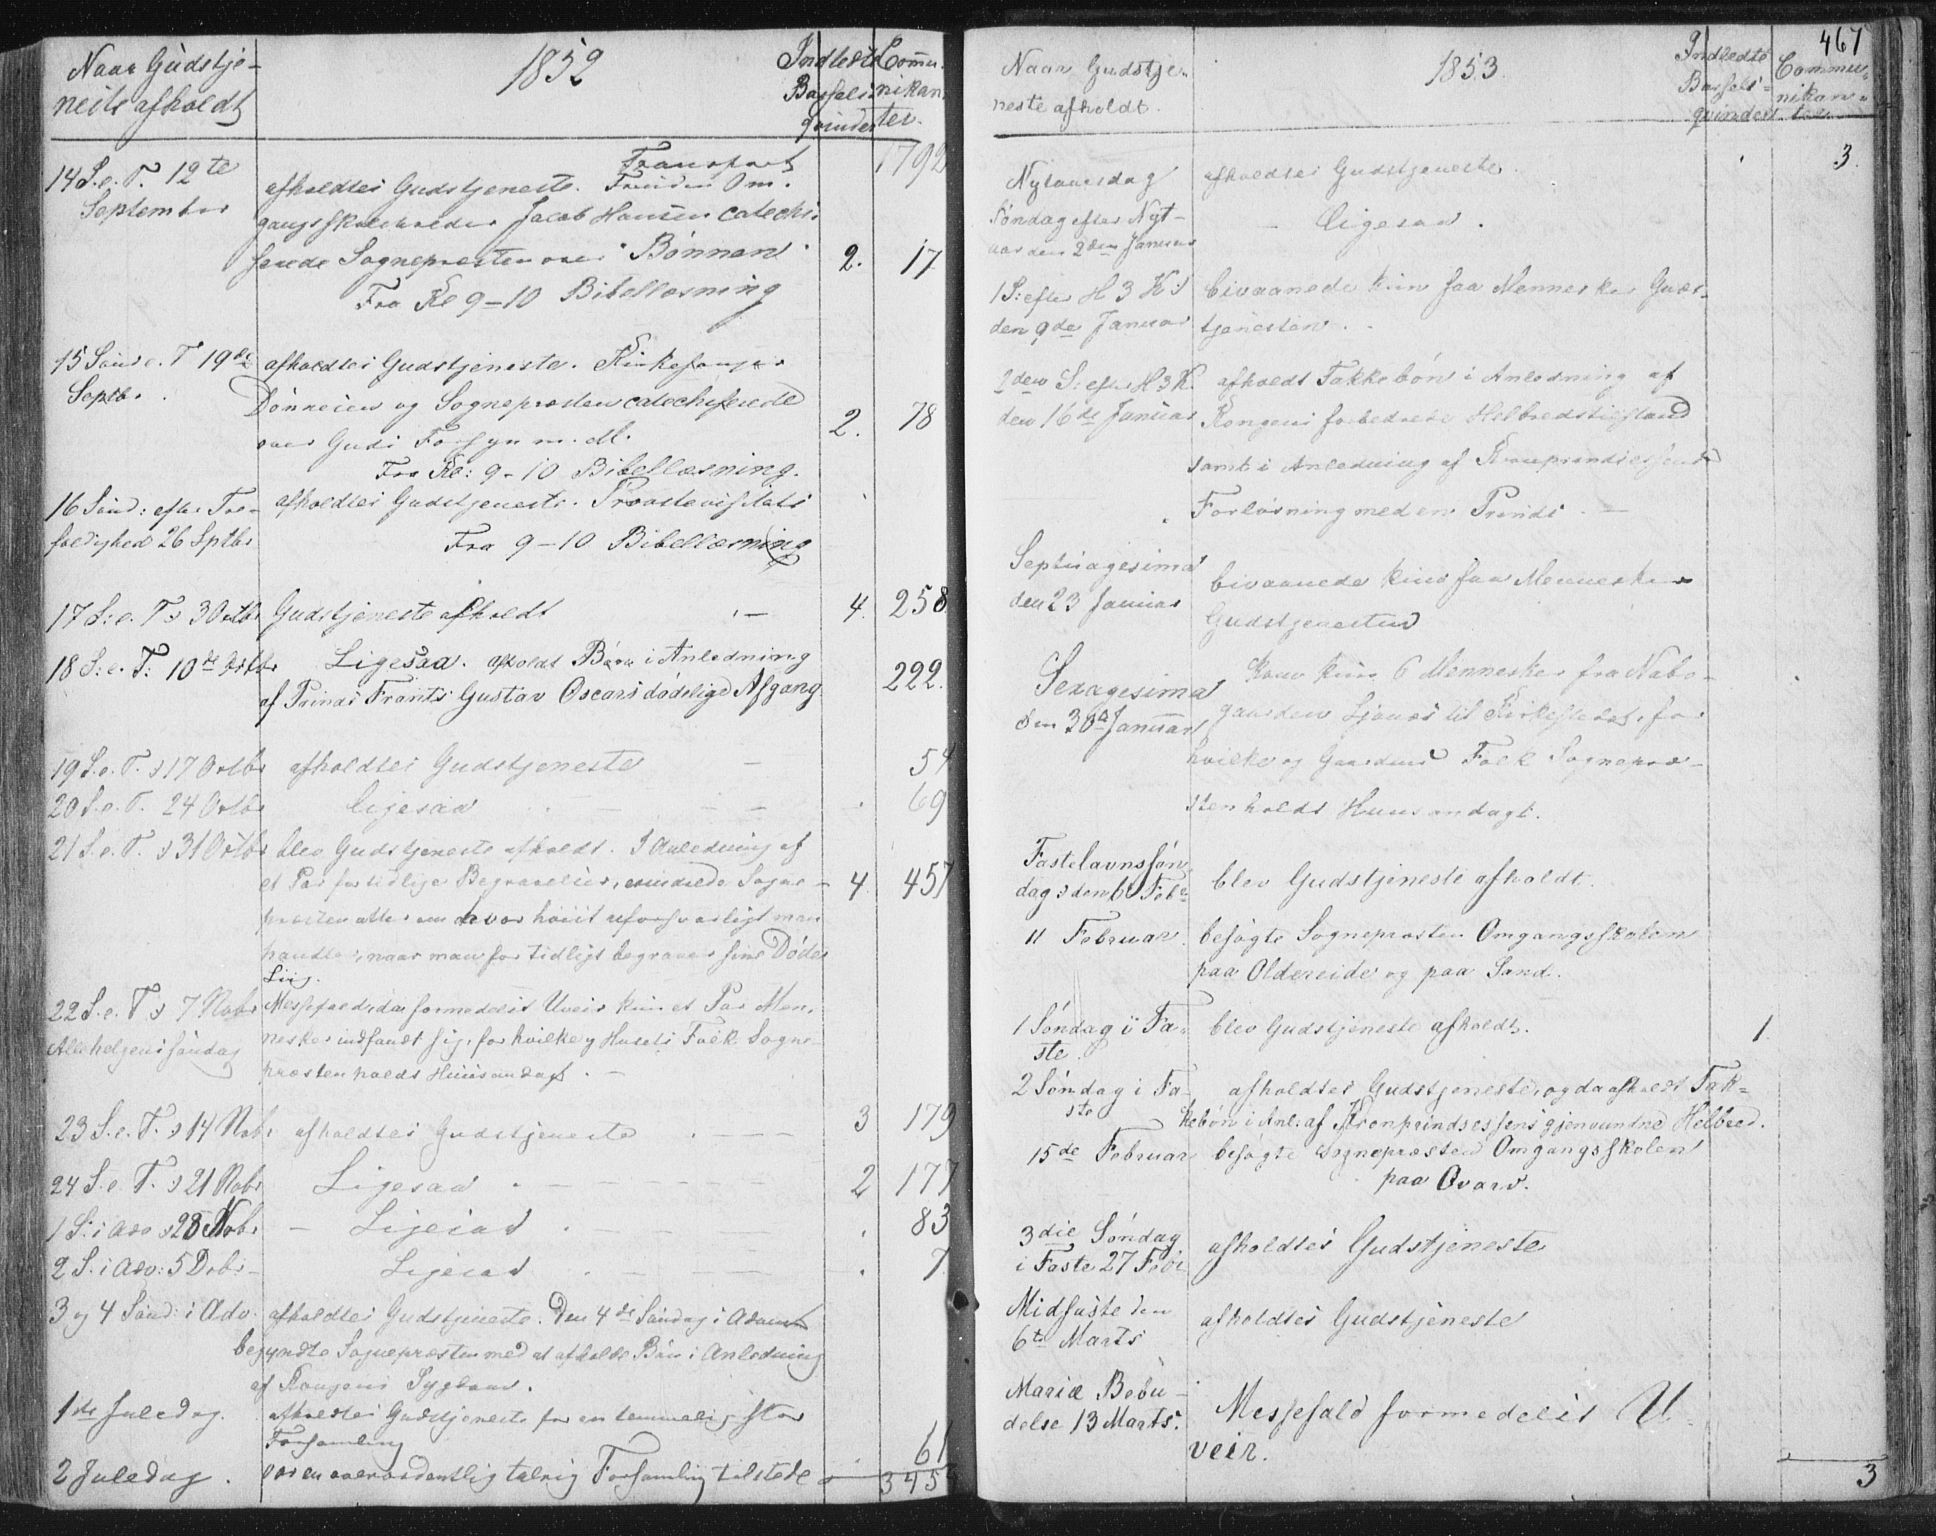 Naar Gudstje-
neste afholdt
1852
Indledte
Barsel-
qvinder
Commu-
nikan-
ter.
Transport 1792
14 S. e. T. 12te
September
afholdtes Gudstjeneste. Om-
gangsskoleholder Jacob Hansen catechi-
serede Sognepræsten over "Bønnen" 2. 17
Fra Kl 9-10 Bibellæsning
15 Sønd e. T 19de
Septbr.
afholdtes Gudstjeneste. Kirkesanger
Dønneien og Sognepræsten catechiserede
over Guds Forsyn m. M. 2. 78
Fra Kl: 9-10 Bibellæsning.
16 Sønd: efter Tre-
foldighed 26 Sptbr
afholdtes Gudstjeneste. Proustevisitats
Fra 9-10 Bibellæsning
17 S: e. T. 3 Octbr Gudstjeneste afholdt 4. 258
18 S: e. T: 10de Octbr Ligesaa. afholdt Bøn i Anledning
af Prinds Frants Gustav Oscars dødelige Afgang 222.
19 S. e. T. 17 Octbr afholdtes Gudstjeneste 54
20 S. e. T. 24 Octbr Ligesaa 69
21 S. e. T. 31 Octbr blev Gudstjeneste afholdt. I Anledning af
et Par for tidlige Begravelser, Sogne-
præsten atter om hvor høiit uforsvarligt man 4. 457
handler, naar man for tidligt begraver sine Dødes
Liig.
22 S. e. T. 7 Novbr
Allehelgens søndag
Messefald, da formedelst Uveir kun et Par Men-
nesker indfandt sig, for hvilke og Husets Folk Sogne-
præsten holdt Huusandagt.
23 S. e. T. 14 Nobr afholdtes Gudstjeneste 3 179
24 S. e. T. 21 Nobr Ligesaa 2 177
1 S: i Adv 28 Nobr Ligesaa 83
2 S. i Adv: 5 Debr Ligesaa 7
3 og 4 Sønd: i Adv. afholdtes Gudstjeneste. Den 4de Søndag i Advent
begyndte Sognepræsten med at afholde Bøn i Anledning
af Kongens Sygdom.
1ste Juledag. afholdtes Gudstjeneste for en temmelig stor
Forsamling 61
2 Juledag. var en overordentlig talrig Forsamling tilstede
345
467
Naar Gudstje-
neste afholdt.
1853.
Indledte
Barsels-
qvinder
Commu-
nikan-
ter
Nytaarsdag afholdtes Gudstjeneste. 3.
Søndag efter Nyt-
aar den 2den Januar
Ligesaa.
1 S: efter H 3 K:
den 9de Januar
bivaanede kun faa Mennesker Guds-
tjenesten.
2den S: efter H 3 K.
den 16de Januar
afholdt Takkebøn i Anledning af
Kongens forbedrede Helbredstilstand
samt i Anledning af Kronprindsessens
Forløsning med en Prinds.
Septuagesima
den 23 Januar
bivaanede kun faa Mennesker
Gudstjenesten
Sexagesima
den 30te Januar
kun 6 Mennesker fra Nabo-
gaarden til Kirkestedet, for
hvilke og Gaardens Folk Sognepræ-
sten holdt Huusandagt.
Fastelavnssøn-
dag den 6te Febr
blev Gudstjeneste afholdt.
11 Februar besøgte Sognepræsten Omgangsskolen
paa Oldereide og paa Sand.
1 Søndag i Fa-
ste.
blev Gudstjeneste afholdt. 1.
2 Søndag i Fa-
ste
afholdtes Gudstjeneste, og da afholdt Tak-
kebøn i Anl: af Kronprindsessens gjenvundne Helbred.
15de Februar besøgte Sognepræsten Omgangsskolen
paa Qvarv.
3die Søndag
i Faste 27 Febr
afholdtes Gudstjeneste
Midfaste den
6te Marts
afholdtes Gudstjeneste
Mariæ Bebu-
delse 13 Marts.
Messefald formedelst U-
veir.
3